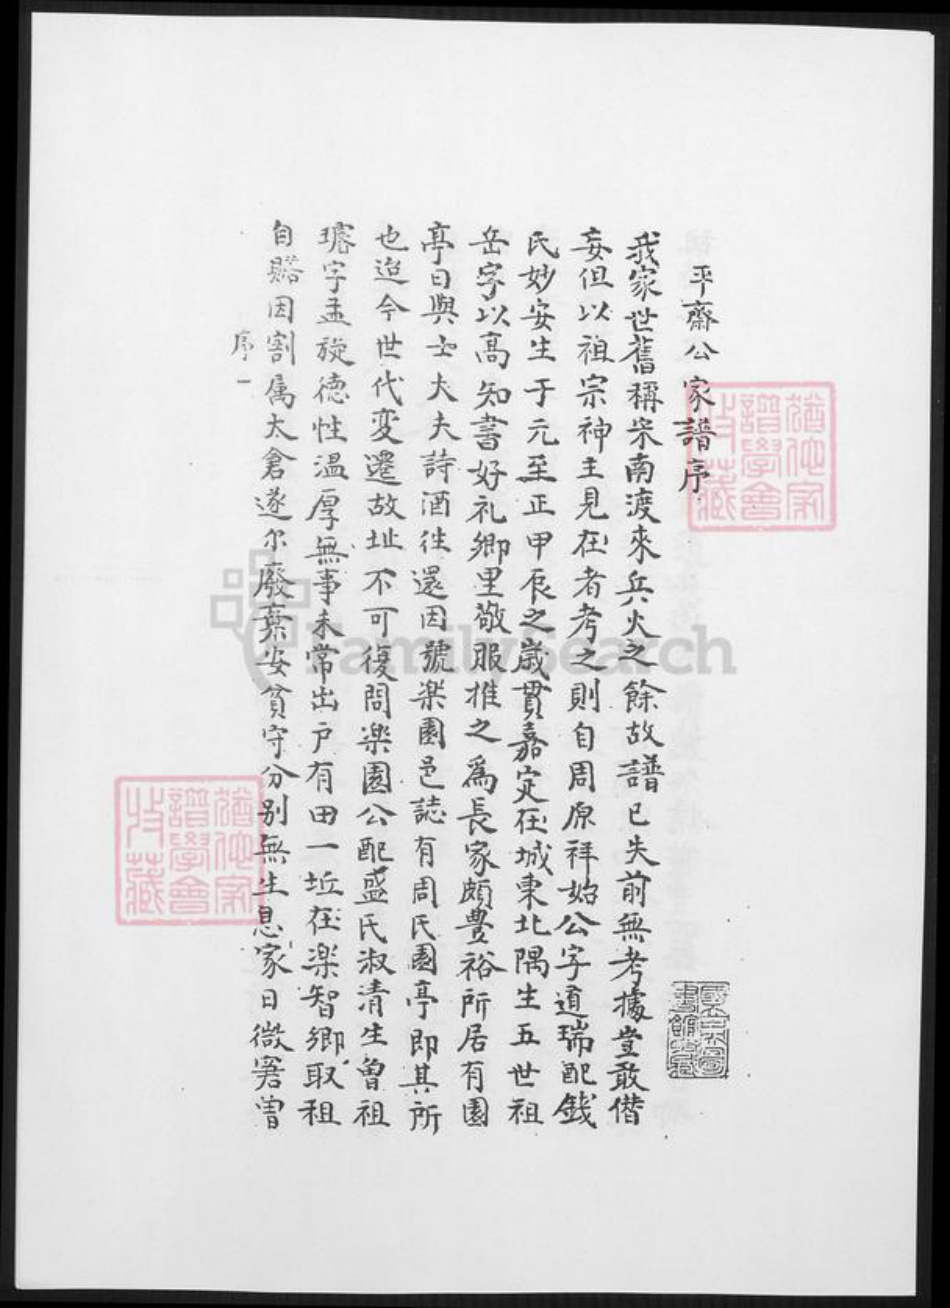 平齋公家譜序
我家世舊稱宋南渡來兵火之餘故譜已失前無考據豈敢僭
妄但以祖宗神主見在者考之則自周原祥始公字道瑞配錢
氏妙安生于元至正甲辰之歲貫嘉定在城東北隅生五世祖
岳字以高知書好礼鄉里敬服推之為長家頗豐裕所居有園
亭日與士夫夫詩酒往還因號楽園邑誌有周氏園亭即其所
也迨今世代変遷故址不可復問楽園公配盛氏淑清生曾祖
璿字孟旋德性温厚無事未常出戶有田一坵在楽智鄉取租
自贍因割属太倉遂尔廢棄安貧守分别無生息家日微窘曾
序一
猶他家譜學會收藏
猶他家譜學會收藏
國立中央圖書館藏
FamilySearch